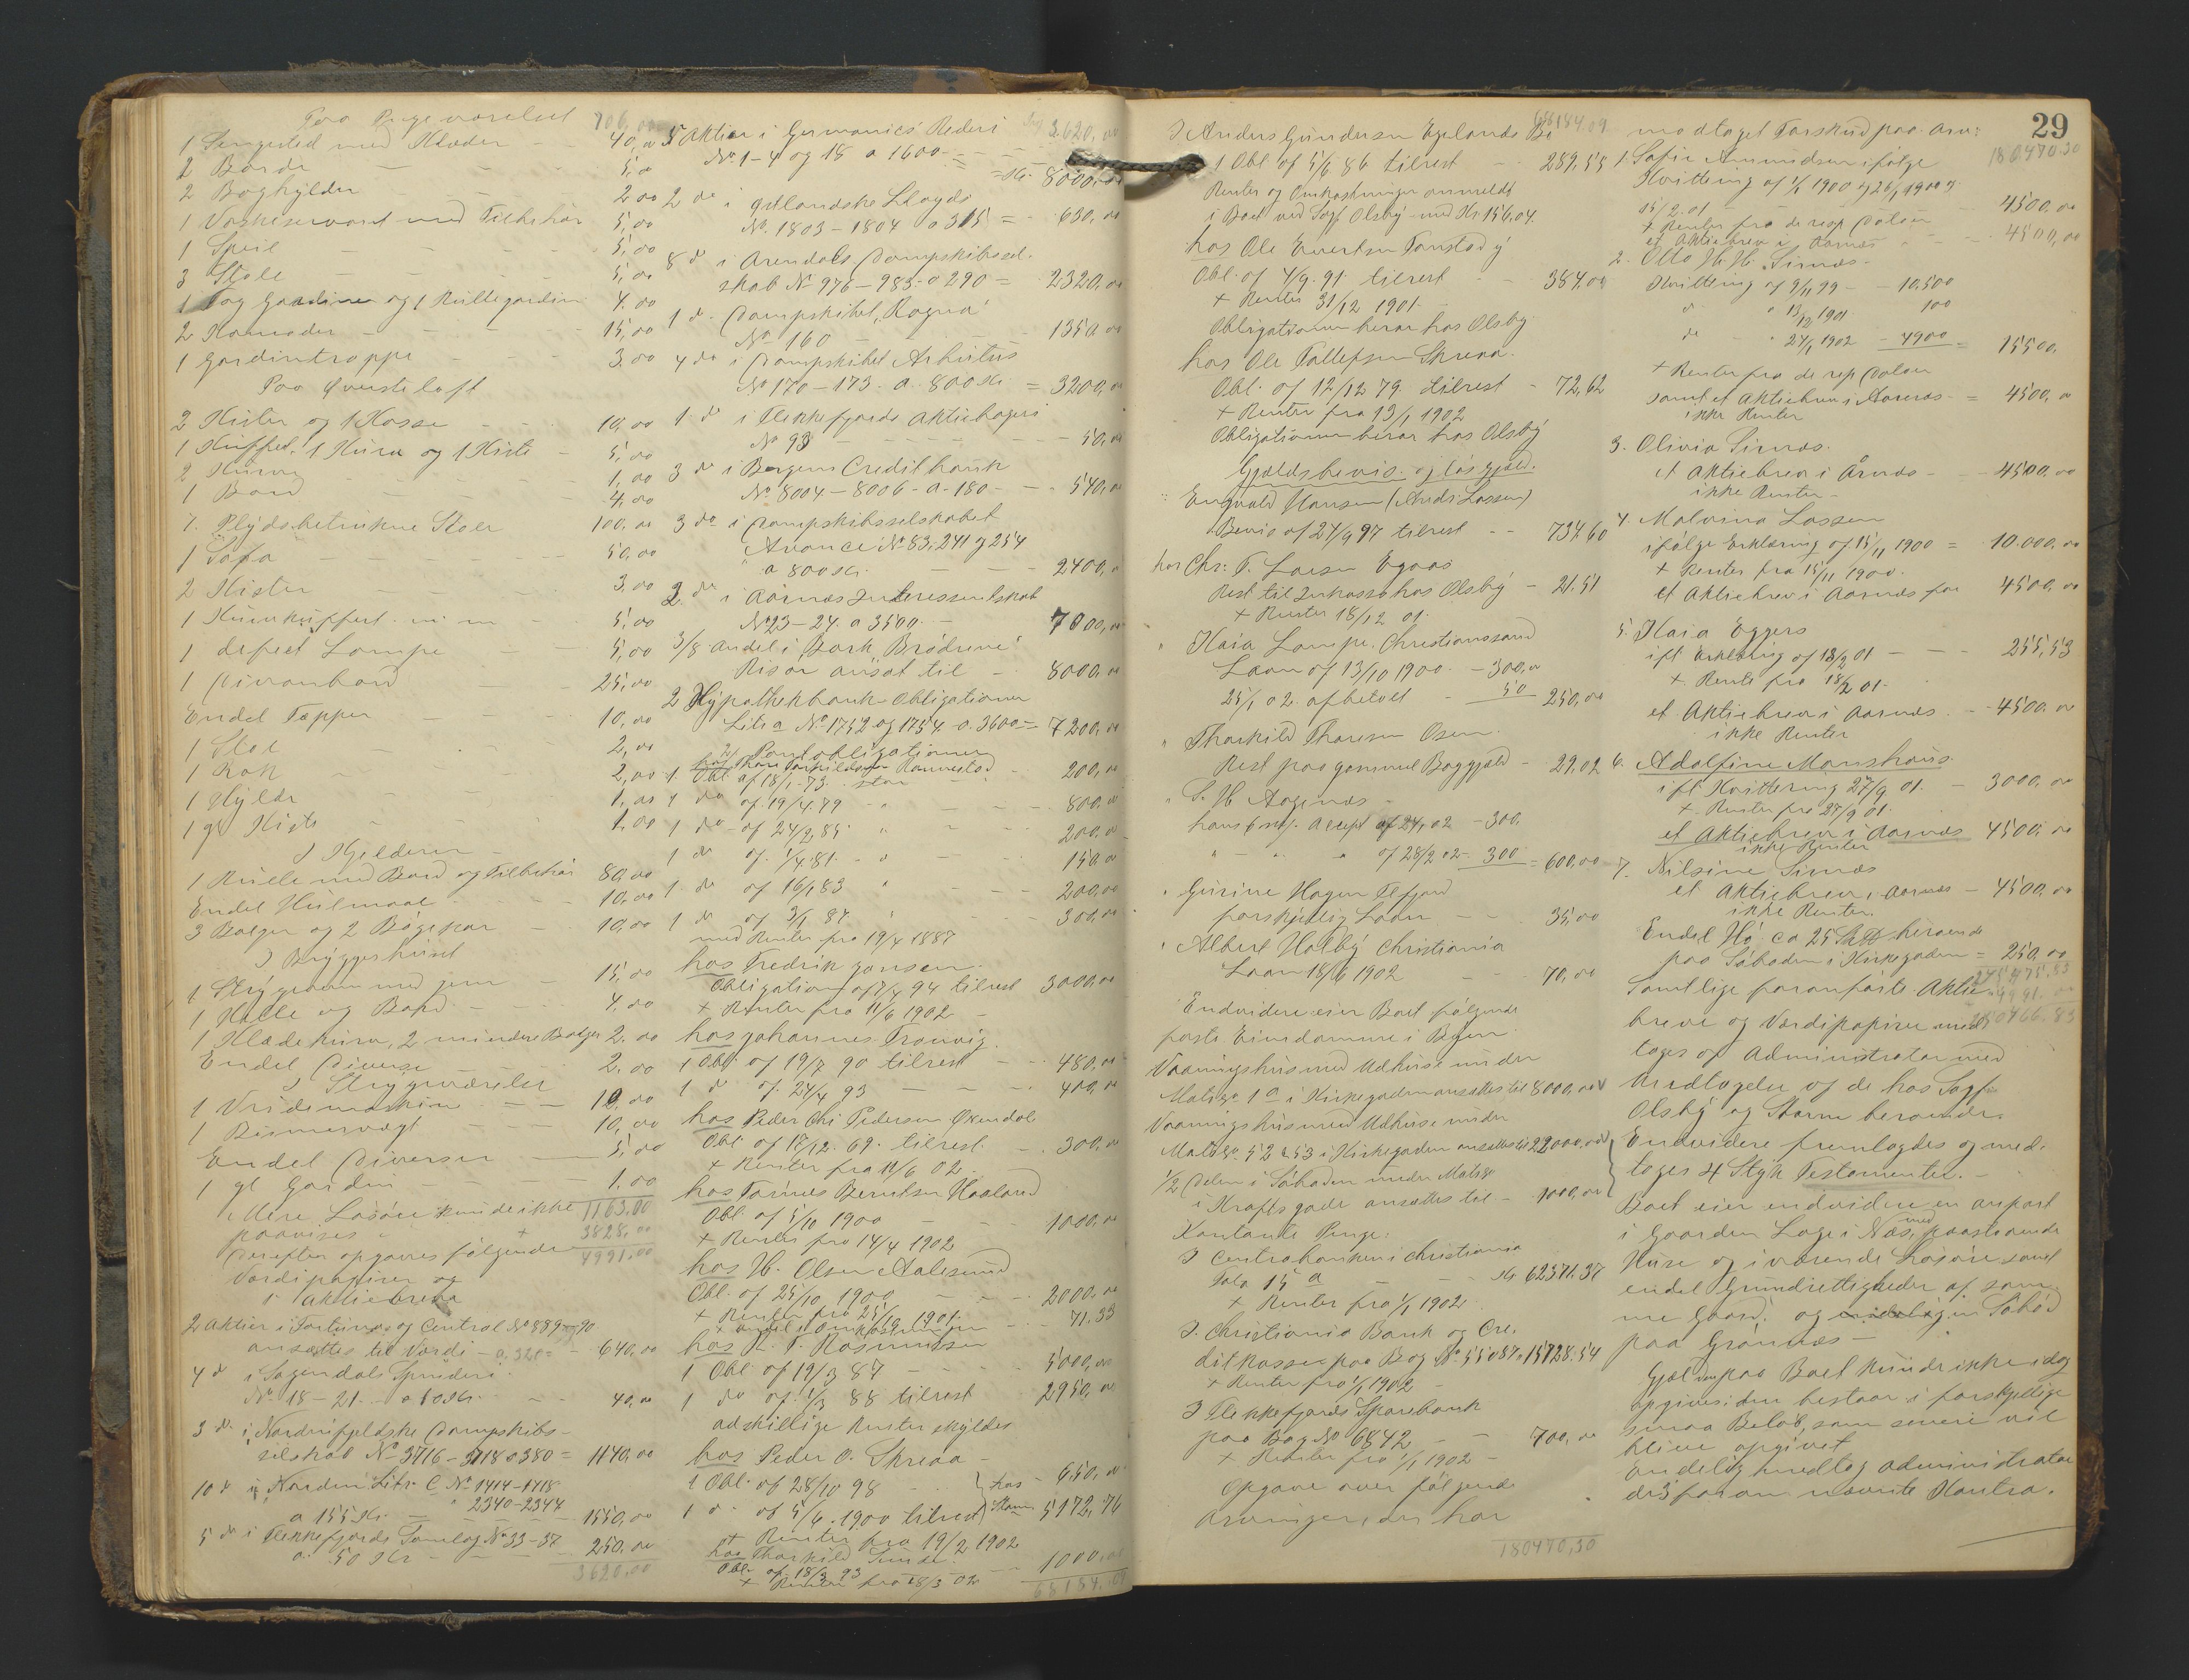 Paa Pigeværelset 706,00
1 Sengested med Klæder - 40,00
2 Borde - 5,00
2 Boghylder 2,00
1 Vaskeservant med Tilbehør 5,00
1 Speil - 5,00
3 Stole - 5,00
1 Fag Gardiner og 1 Rullegardin 4.00
2 Komoder - 15,00
1 Gardintrappe - 3.00
Paa Øversteloft
2 Kister og 1 Kasse - 10,00
1 Kuffert, 1 Kurv og 1 Kiste - 5,00
2 Kurve 1,00
1 Bord - 4,00
7. Plydsbetrukne Stoler 100,00
1 Sofa - 50,00
2 Kister 3,00
1 Kurvkuffert m. m 5,00
1 defect Lampe - 5,00
1 Divanbord 25,00
Endel Tæpper - 10,00
1 Stol 2,00
1 Rok - 2,00
1 Hylde - 1,00
1 gl Kiste - 1,00
I Kjelderen
1 Rulle med Bord og Tilbehør 80,00
Endel Hulmaal - 10,00
3 Balger og 2 Bøgekar - 10,00
I Bryggerhuset
1 Strygeovn med jern - 15,00
1 Kille og Bord - 4,00
1 Klædekurv, 2 mindre Balger 2.00
Endel Diverse 2.00
I Strygeværelse
1 Vridemaskin - 10,00
1 Bismervægt - 10,00
Endel Diverse - 5,00
1 gl Gardin - 1.00
Mere Løsøre kunde ikke 1163.00
paavises. + 3828,00
Derefter opgaves følgende 4991,00
Værdipapirer og
Aktiebreve
2 Aktier i Fortuna og Central No 889-90
ansættes til Værdi - a 320 = - 640,00
4 d i Sagendals Spinderi
No 18-21 - a 10 Kr. - 40,00
3 do i Nordenfjeldske Dampskibs-
selskab No 3716-3718 a 380 = 1140,00
10 d i Norden Litr. C No 1414-1418
" 2340-2344
a 155 Kr. - 1550,00
5 do i Flekkefjords Tomlag No 33-37
a 50 Kr - 250,00
3620,00
3.620,00
5 Aktier i Germanics Rederi
No 1-4 og 18 a 1600 -
= Kr. 8000,00
2 do i Gjellandske Lloyds
No. 1803-1804 a 315 = - 630,00
8 d i Arendals Dampskibssel-
skab No 976-983 a 290 = 2320,00
1 do Dampskibet „Ragna"
No 160 - 1350,00
4 do i Dampskibet Arbutus
No 170-173. a. 800 Kr. = 3200,00
1 do i Flekkefjords Aktiebageri
No 93 - 50,00
3 do i Bergens Creditbank
No 8004-8006 - a - 180 - 540,00
3 do i Dampskibsselskabet
Avance No 83, 241 og 254
a 800 Kr. - 2400,00
2 do i Aarnæs Interessentskab
No 23-24. a 3500. - 7000,00
3/8 andel i Bark „Brødrene"
Risør ansat til - 8000,00
2 Hypothekbank-Obligationer
Litr a No 1752 og 1754. a. 3600 = 7200,00
Pantobligationer
1 Obl af 18/1 73 - 200,00
1 do af 19/4 79 - 800,00
1 do af 24/2 85 " 200,00
1 do af 1/4 81 - 150,00
1 do af 16/1 83 " 200,00
1 do af 3/1 87 " 300,00
med Renter fra 19/4 1887
hos Fredrik Jansen.
Obligation af 9/4 94 tilrest 3000,00
+ Renter fra 11/6 1902 -
hos Johannes Tronvig.
1 Obl. af 19/7 90 tilrest - 480,00
1 d af. 24/4 93 - 400,00
hos Peder Chr Pedersen Øxendal
Obl af 17/12. 69. tilrest. - 300,00
+ Renter fra 11/6 02.
hos Tønnes Berntsen Haaland
Obl. af 5/10 1900 - 1000,00
+ Renter fra 14/4 1902
hos H. Olsen Aalesund
Obl. af 25/10 1900 - 2000,00
+ Renter fra 25/10 1901.
71.33
hos R. T. Rasmussen
1 Obl. af 19/3 87 - 5000,00
1 do af. 1/3 88 tilrest 2950,00
adskillige Renter skyldes
hos Peder O. Skreaa -
1 Obl. af 28/10 98 - 650,00
1 do af 5/6. 1900 tilrest 5172,76
+ Renter fra 19/2 1902
hos Thorkild Sunde.
Obl. af. 18/3 93 - 1000,00
+ Renter fra 18/3 02
68184,09
29
68184.09
I Anders Gundersen Egelands Bo
1 Obl. af 5/6 86 tilrest - 289,55
Renter og Omkostninger anmeldt
i Boet ved Sagf Olsby med Kr 156.04.
hos Ole Evertsen Fanstad y
Obl. af 4/9. 91. tilrest - 384,00
+ Renter 31/12 1901.
Obligationen beror hos Olsby
hos Ole Tollefsen Skreaa.
Obl. af 12/12 79. tilrest - 72,62
+ Renter fra 13/1 1902
Obligationen beror hos Olsby
Gjældsbevis. og løsgjæld.
Engvald Hansen (Ands. Lassen)
Bevis af 24/9 97 tilrest - 734.60
hos Chr: F. Larsen Egaas
Rest til Inkasso hos Olsby - 21.51
+ Renter 18/12 01.
" Kaia Lampe. Christianssand
Laan af 13/10 1900 - 300,00
25/1 02 afbetalt - 50 250,00
" Thorkild Thoresen Osen
Rest paa gammel Boggjæld - 29,02
" S. H Aagenæs
hans 6 mdr. Accept af 24/1 02 - 300.
" af 28/2 02 - 300 = 600,00
" Gurine Hagen Flefjord
forskjellig Laan - 35,00
" Albert Holby Christiania
Laan 18/6 1902 - 70,00
Endvidere eier Boet følgende
faste Eiendomme i Byen
Vaaningshus med Udhuse under
Mats No 1a i Kirkegaden ansættes til 8000,00
Vaaningshus med Udhuse under
Mats No. 52 & 53 i Kirkegaden ansættes til 22000,00
1/2 Delen i Søboden under Mats No
i Krafts gade ansættes til - 1000,00
Kontante Penge:
I Centralbanken i Christiania
Folio 15 a - Kr 62371.37
+ Renter fra 1/1 1902
I. Christiania Bank og Cre-
ditkasse paa Bog No 55087. 15728.54
+ Renter fra 1/1 1902 -
I Flekkefjords Sparebank
paa Bog No 6842 - 700,00
+ Renter fra 1/1 1902 -
Opgave over følgende
Arvinger, der har
180470,30
modtaget Forskud paa Arv:
180470.30
1. Sofie Amundsen ifølge
Kvittering af 1/6 1900 og 26/1 1900 og
15/2 01 - 4500,00
+ Renter fra de resp Datoer
et Aktiebrev i Aarnæs - 4500,00
2. Otto H. H. Sirnæs -
Kvittering af 9/11 99 - 10.500
d " 13/12 1901 100
do - " 24/1 1902 - 4900 = 15500.
+ Renter fra de resp Datoer
samt et Aktiebrev i Aarnæs - = 4500,00
ikke Renter
3. Olivia Sirnæs.
et Aktiebrev i Årnæs - 4500,00
ikke Renter -
4. Malvina Lassen
ifølge Erklæring af 15/11 1900 = 10.000,00
+ Renter fra 15/11 1900.
et Aktiebrev i Aarnæs for 4500,00
5. Kaia Eggers
ifl Erklæring af 18/2 01 - 255,53
+ Rente fra 18/2 01.
et Aktiebrev i Aarnæs. - 4500.00
ikke Renter
6. Adolfine Monshaus.
ifl Kvittering 27/9 01. - 3000,00
+ Renter fra 27/9 01.
et Aktiebrev i Aarnæs 4500,00
ikke Renter
7. Nilsine Sirnæs
et Aktiebrev i Aarnæs - 4500,00
ikke Renter.
Endel Hø ca 25 beroende
paa Søboden i Kirkegaden = 250,00
Samtlige foranførte Aktie-
breve og Værdipapirer med-
toges af Administrator med
Undtagelse af de hos Sagf.
Olsby og Storm beroende.
Endvidere fremlagdes og med-
toges 4 Styk Testamenter. -
Boet eier endvidere en anpart
i Gaarden Loge i Næs, med paastaaende
Huse og iværende Løsøre samt
endel Grundrettigheder af sam-
me Gaard, og en Søbod
paa Grønnæs -
Gjæld paa Boet kunde ikke idag
opgives; den bestaar i forskjellige
smaa Beløb, som senere vil
blive opgivet
Endelig medtog Administrator
de 3 foran nævnte Kontra.